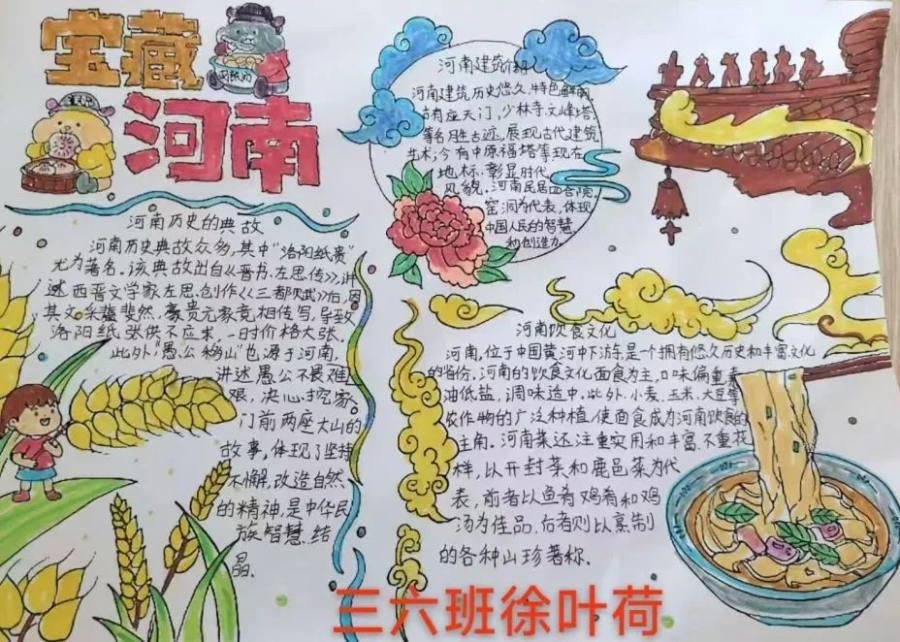 宝藏
河南
河南历史的典故
河南历史典故众多,其中"洛阳纸贵"
尤为著名。该典故出自《晋书.左思传》,讲
述西晋文学家左思,创作《三都赋》后,因
其文采斐然,豪贵元家竞相传写,导致
洛阳纸张供不应求,一时价格大张.
此外"愚公移山"也源于河南,
讲述愚公不畏难
艰,决心挖家
门前两座大山的
故事,体现了坚持
不懈,改造自然
的精神,是中华民
族智慧结
晶.
河南建筑介绍
河南建筑,历史悠久,特色鲜明
古有座天门,少林寺文峰塔
等名胜古迹,展现古代建筑
艺术;今有中原福塔等现在
地标,彰显时代
风貌.河南民居四合院,
窑洞为代表,体现
中国人民的智慧,
和创造力.
河南饮食文化
河南,位于中国黄河中下游是个拥有悠久历史和丰富文化
的省份.河南的饮食文化面食为主,口味偏重素
油低盐,调味适中.此外,小麦,玉米,大豆等
农作物的广泛种植,使面食成为河南饮食的
主角.河南菜还注重实用和丰富,不重花
样,以开封菜和鹿邑菜为代
表,前者以鱼肴鸡肴和鸡
汤为佳品,后者则以烹制
的各种山珍著称.
三六班徐叶荷